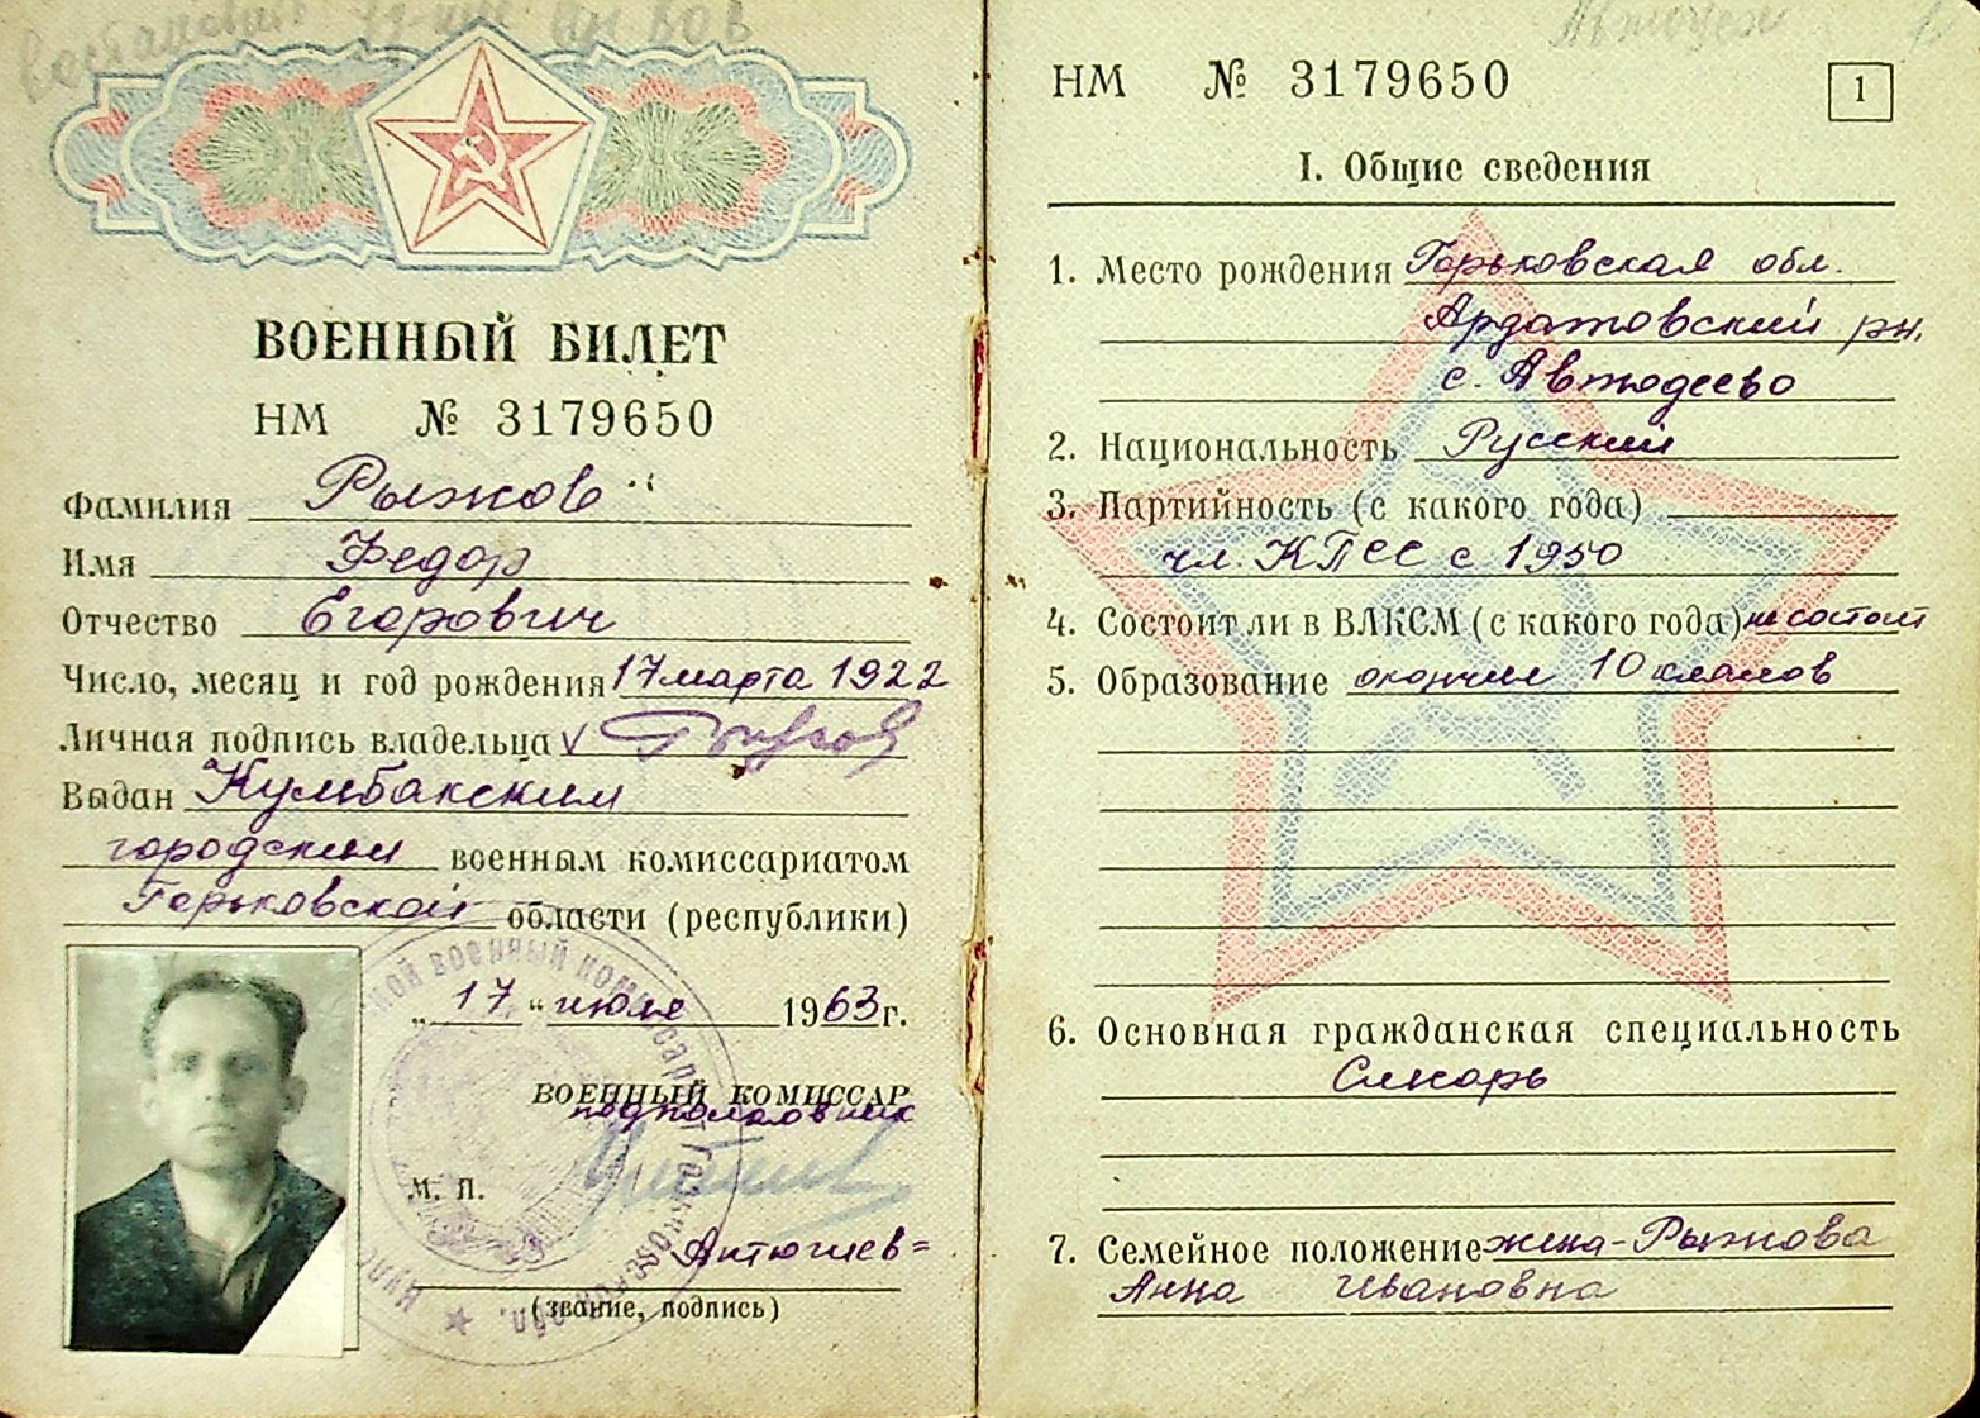 ВОЕННЫЙ БИЛЕТ
НМ № 3179650
Фамилия Рыжов
Имя Федор
Отчество Егорович
Число, месяц и год рождения 17 марта 1922
Личная подпись владельца
Выдан Кулебакским
городским военным комиссариатом
Горьковской области (республики)
„17“ июля 1963 г.
ВОЕННЫЙ КОМИССАР
подполковник
М. П.
Антюшев
(звание, подпись)
НМ № 3179650
1
I. Общие сведения
1. Место рождения Горьковская обл.
Ардатовский рн.
с. Автодеево
2. Национальность Русский
3. Партийность (с какого года)
чл. КПСС с 1950
4. Состоит ли в ВЛКСМ (с какого года) не состоит
5. Образование окончил 10 классов
6. Основная гражданская специальность
Слесарь
7. Семейное положение жена - Рыжова
Анна Ивановна